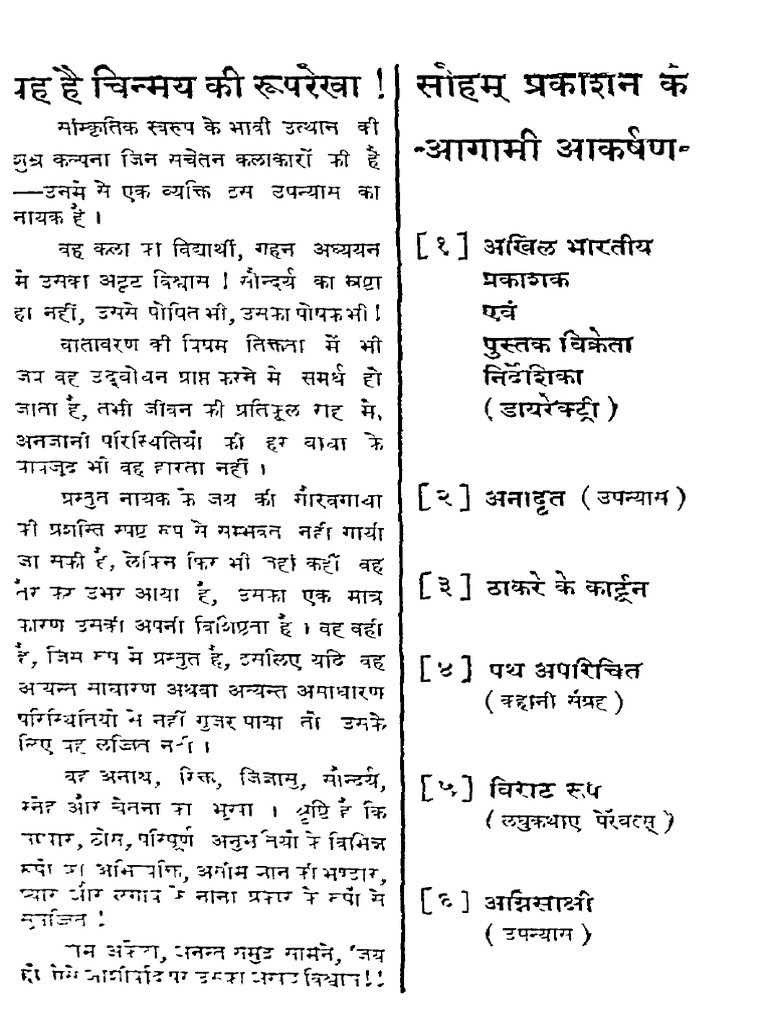 यह है चिन्मय की रूपरेखा !
सांस्कृतिक स्वरूप के भावी उत्थान की
शुभ्र कल्पना जिन सचेतन कलाकारों की है
—उनमे से एक व्यक्ति इस उपन्यास का
नायक है ।
वह कला का विद्यार्थी, गहन अध्ययन
मे उसका अटूट विश्वास ! सौन्दर्य का स्रष्टा
ही नहीं, उससे पोषित भी, उसका पोषक भी !
वातावरण की विषम तिक्तता में भी
जब वह उद्‌बोधन प्राप्त करने मे समर्थ हो
जाता है, तभी जीवन की प्रतिकूल राह मे,
अनजानी परिस्थितियों की हर बाधा के
बावजूद भी वह हारता नहीं ।
प्रस्तुत नायक के जय की गौरवगाथा
की प्रशस्ति स्पष्ट रूप से सम्भवत नहीं गायी
जा सकी है, लेकिन फिर भी जहां कहीं वह
तैर कर उभर आया है, उसका एक मात्र
कारण उसकी अपनी विशिष्टता है । वह वही
है, जिस रूप मे प्रस्तुत है, इसलिए यदि वह
अत्यन्त साधारण अथवा अत्यन्त असाधारण
परिस्थितियो मे नहीं गुजर पाया तो उसके
लिए वह लज्जित नहीं ।
वह अनाथ, रिक्त, जिज्ञासु, सौन्दर्य,
स्नेह और चेतना का भूखा । दृष्टि है कि
ठोस, परिपूर्ण अनुभूतियो के विभिन्न
रूपो का अभिव्यक्ति, असीम ज्ञान की भण्डार,
प्यार और लगाव के नाना प्रकार के रूपों से
सुसज्जित !
अकेला, अनन्त समुद्र सामने, 'जय
हो' ऐसे आशीर्वाद पर उसका अगाध विश्वास !!
सोहम् प्रकाशन के
-आगामी आकर्षण-
[१] अखिल भारतीय
प्रकाशक
एवं
पुस्तक विक्रेता
निर्देशिका
(डायरेक्ट्री)
[२] अनादृत (उपन्यास)
[३] ठाकरे के कार्टून
[४] पथ अपरिचित
(कहानी संग्रह)
[५] विराट रूप
(लघुकथाए पॅरेबल्स्)
[६] अग्निसाक्षी
(उपन्यास)